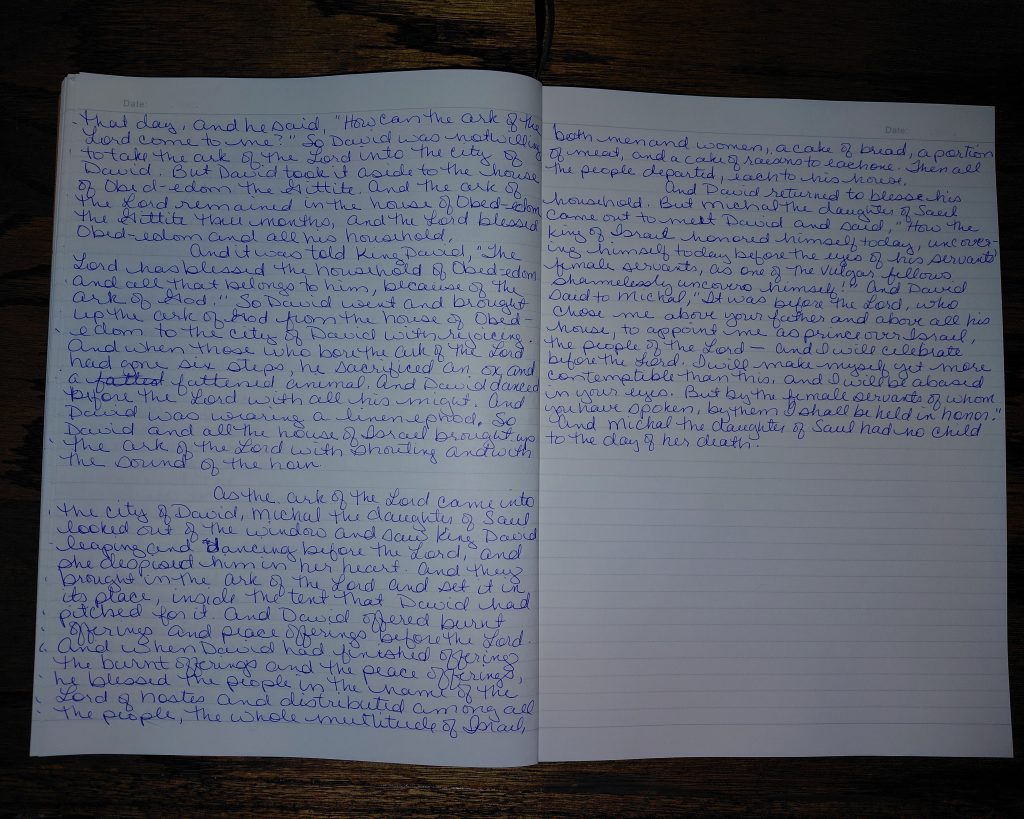 Date:
that day, and he said, "How can the ark of the
Lord come to me?" So David was not willing
to take the ark of the Lord into the city of
David. But David took it aside to the house
of Obed-edom the Gittite. And the ark of
the Lord remained in the house of Obed-edom
the Gittite three months, and the Lord blessed
Obed-edom and all his household.
And it was told King David, "The
Lord has blessed the household of Obed-edom
and all that belongs to him, because of the
ark of God." So David went and brought
up the ark of God from the house of Obed-
edom to the city of David with rejoicing.
And when those who bore the ark of the Lord
had gone six steps, he sacrificed an ox and
a fattened animal. And David danced
before the Lord with all his might. And
David was wearing a linen ephod. So
David and all the house of Israel brought up
the ark of the Lord with shouting and with
the sound of the horn
As the ark of the Lord came into
the city of David, Michal the daughter of Saul
looked out of the window and saw King David
leaping and dancing before the Lord, and
she despised him in her heart. And they
brought in the ark of the Lord and set it in
its place, inside the tent that David had
pitched for it. And David offered burnt
offerings and peace offerings before the Lord.
And when David had finished offering
the burnt offerings and the peace offerings,
he blessed the people in the name of the
Lord of hostes and distributed among all
the people, the whole multitude of Israel,
Date:
both men and women, a cake of bread, a portion
of meat, and a cake of raisins to each one. Then all
the people departed, each to his house.
And David returned to bless his
household. But Michal the daughter of Saul
came out to meet David and said, "How the
king of Israel honored himself today, uncover-
ing himself today before the eyes of his servants'
female servants, as one of the vulgar fellows
shamelessly uncovers himself!" And David
said to Michal, "It was before the Lord, who
chose me above your father and above all his
house, to appoint me as prince over Israel,
the people of the Lord — and I will celebrate
before the Lord. I will make myself yet more
contemptible than this, and I will be abased
in your eyes. But by the female servants of whom
you have spoken, by them I shall be held in honor."
And Michal the daughter of Saul had no child
to the day of her death.